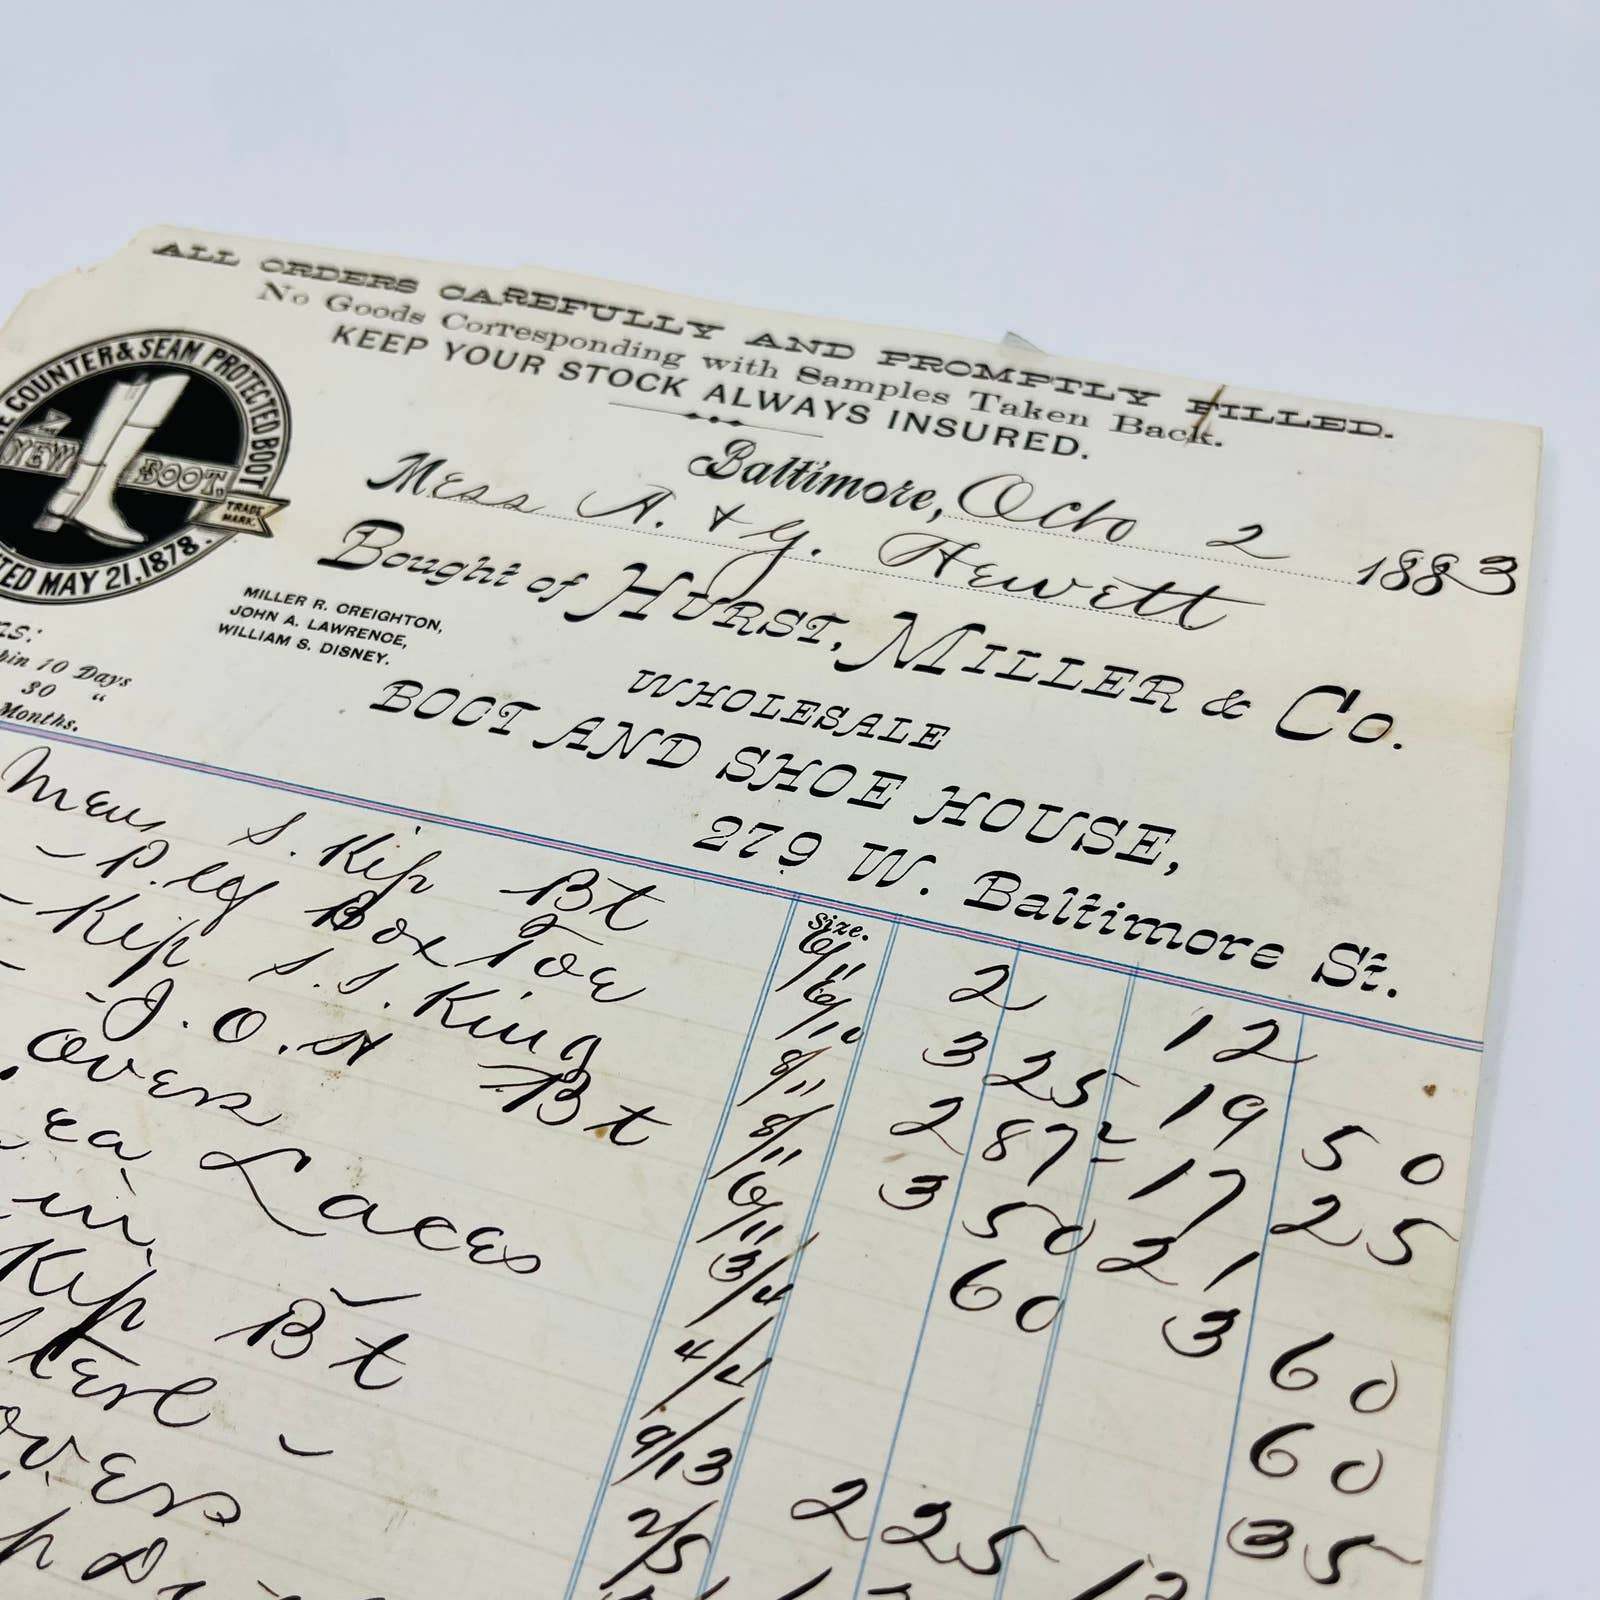 ALL ORDERS CAREFULLY AND PROMPTLY FILLED.
No Goods Corresponding with Samples Taken Back.
KEEP YOUR STOCK ALWAYS INSURED.
COUNTER & SEAM PROTECTED BOOT
NEW BOOT.
TRADE MARK.
TED MAY 21, 1878.
Baltimore, Octo 2 1883
Mess A. & G. Hewett
Bought of HURST, MILLER & Co.
MILLER R. CREIGHTON,
JOHN A. LAWRENCE,
WILLIAM S. DISNEY.
WHOLESALE
BOOT AND SHOE HOUSE,
279 W. Baltimore St.
10 Days
30 "
Months.
Size.
Mens S. Kip Bt 6/11 2 12
Box Toe 6/10 3 25 19 50
Kip S.S. King 8/11 2 87 17 25
J.O.H Bt 8/11 3 50 21
Overs 6/11 60 3 60
ea Laces 3/4 60
in 4/4 35
Kip Bt 9/13 2 25
2/5